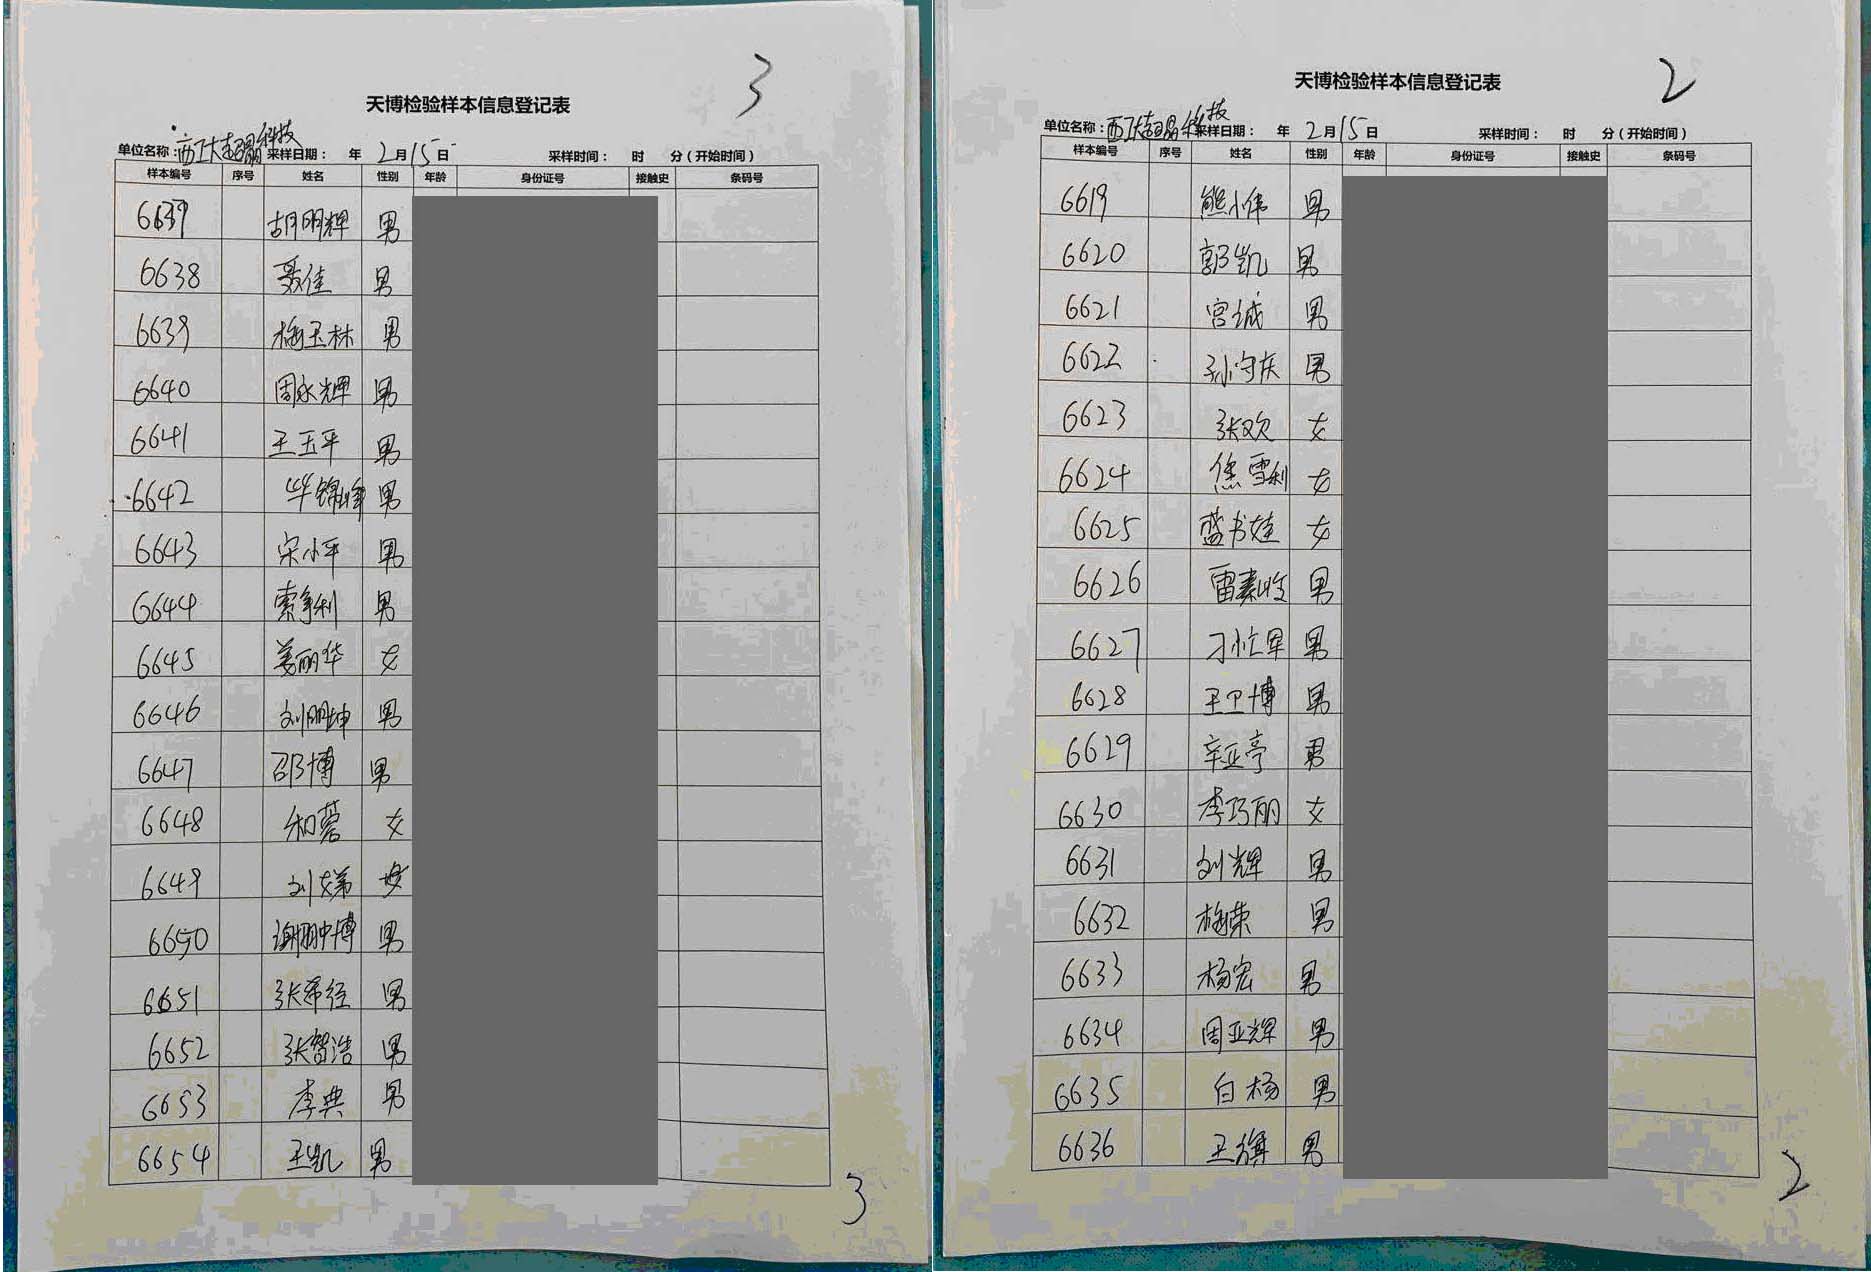 3
天博检验样本信息登记表
单位名称：西工大超晶科技 采样日期： 年 2月15日 采样时间： 时 分（开始时间）
样本编号 序号 姓名 性别 年龄 身份证号 接触史 条码号
6637 胡明辉 男
6638 聂佳 男
6639 梅玉林 男
6640 周永辉 男
6641 王玉平 男
6642 华锦峰 男
6643 宋小平 男
6644 索争利 男
6645 姜丽华 女
6646 刘朋坤 男
6647 邵博 男
6648 和蕾 女
6649 刘娣 女
6650 谢翀博 男
6651 张希经 男
6652 张智浩 男
6653 李典 男
6654 王凯 男
3
2
天博检验样本信息登记表
单位名称：西工大超晶科技 采样日期： 年 2月15日 采样时间： 时 分（开始时间）
样本编号 序号 姓名 性别 年龄 身份证号 接触史 条码号
6619 熊小伟 男
6620 郭凯 男
6621 宫城 男
6622 孙守庆 男
6623 张欢 女
6624 焦雪利 女
6625 蓝书娃 女
6626 雷素收 男
6627 刁忙军 男
6628 王卫博 男
6629 辛亚亭 男
6630 李巧丽 女
6631 刘辉 男
6632 梅荣 男
6633 杨宏 男
6634 周亚辉 男
6635 白杨 男
6636 王 男
2